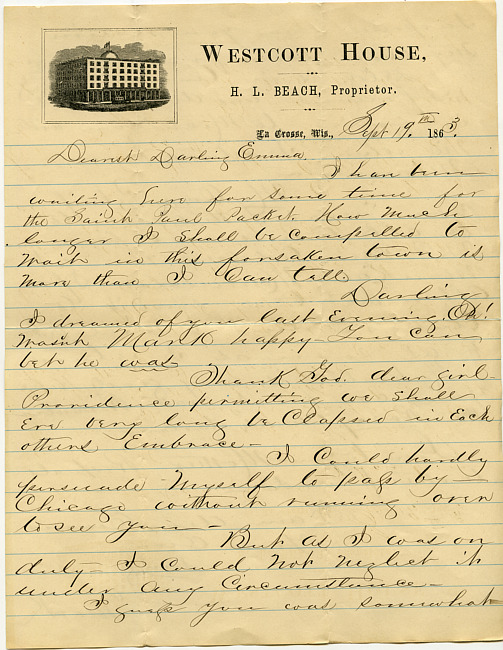 WESTCOTT HOUSE,
H. L. BEACH, Proprietor.
La Crosse, Wis., Sept 19th 1863.
Dearest Darling Emma.
I have been
waiting here for some time for
the Saint Paul Packet. How much
longer I shall be compelled to
wait in this forsaken town is
more than I can tell
Darling
I dreamed of you last Evening. Oh!
Wasnt Mark happy You can
bet he was
Thank God, dear girl
Providence permitting we shall
ere very long be Clasped in Each
others Embrace -
I Could hardly
persuade Myself to pass by
Chicago without running over
to see you -
But as I was on
duty I Could Not neglect it
under any Circumstance -
I guess you was somewhat